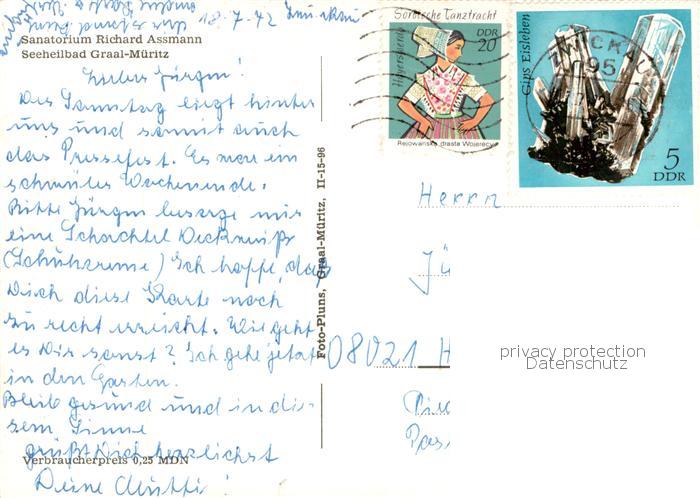 18.7.72
Sanatorium Richard Assmann
Seeheilbad Graal-Müritz
Lieber Jürgen!
Der Samstag liegt hinter
uns und somit auch
das Pressefest. Es war ein
schwüles Wochenende.
Bitte Jürgen besorge mir
eine Schachtel Deckweiß
(Schuhcreme) Ich hoffe, daß
Dich diese Karte noch
zu recht erreicht. Wie geht
es Dir sonst? Ich gehe jetzt
in den Garten.
Bleib gesund und in die-
sem Sinne
grüßt Dich herzlichst
Verbraucherpreis 0,25 MDN
Deine Mutti!
Foto-Pluns, Graal-Müritz, II-15-96
Sorbische Tanztracht
Hoyerswerda
DDR
20
Rejowanska drasta Wojerecy
Gips Eisleben
ZWICKAU
95
5
DDR
Herrn
Jü
08021 H
privacy protection
Datenschutz